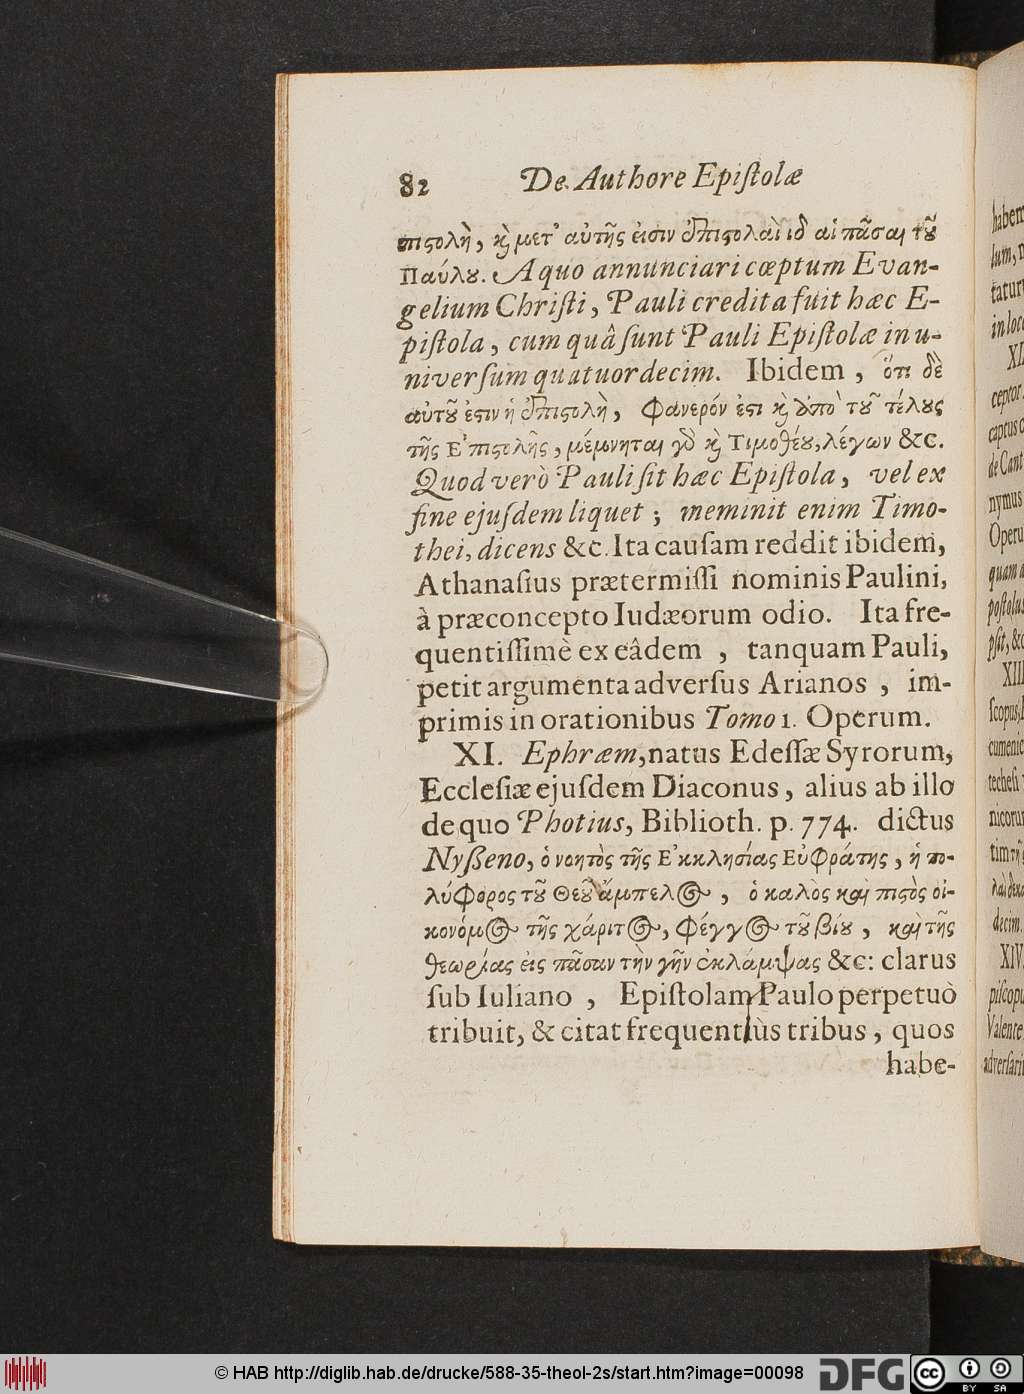 82 De Authore Epiſtolæ
πιςολὴ, κỳ μετ' αὐτῆς εἰσιν ἐπιςολαὶ ιδ αἱ πᾶσαι τοῦ
Παύλου. A quo annunciari cœptum Evan-
gelium Chriſti, Pauli credita fuit hæc E-
piſtola, cum quâ ſunt Pauli Epiſtolæ in u-
niverſum quatuordecim. Ibidem, ὅτι δὲ
αὐτοῦ ἐςιν ἡ ἐπιςολὴ, Φανερόν ἐςι κỳ ἀπὸ τοῦ τέλους
τῆς Ἐπιςολῆς, μέμνηται γδ κỳ Τιμοθέου, λέγων &c.
Quod verò Pauli ſit hæc Epiſtola, vel ex
fine ejuſdem liquet; meminit enim Timo-
thei, dicens &c. Ita cauſam reddit ibidem,
Athanaſius prætermiſſi nominis Paulini,
à præconcepto Iudæorum odio. Ita fre-
quentiſſimè ex eâdem, tanquam Pauli,
petit argumenta adverſus Arianos, im-
primis in orationibus Tomo 1. Operum.
XI. Ephræm, natus Edeſſæ Syrorum,
Eccleſiæ ejuſdem Diaconus, alius ab illo
de quo Photius, Biblioth. p. 774. dictus
Nyßeno, ὁ νοητὸς τῆς Ἐκκλησίας Εὐφράτης, ἡ πο-
λύφορος τοῦ Θεοῦ ἄμπελος, ὁ καλὸς καὶ πιςὸς οἰ-
κονόμος τῆς χάριτος, φέγγος τοῦ βίου, καὶ τῆς
θεωρίας εἰς πᾶσαν τὴν γῆν ἐκλάμψας &c: clarus
ſub Iuliano, Epiſtolam Paulo perpetuò
tribuit, & citat frequentiùs tribus, quos
habe-
habem
lum,
tatur
in loc
XI
ceptor
captus
de Cant
nymus
Oper
quam
poſtolus
pſit, &c
XIII
ſcopus,
cumenic
techeſi
nicoru
tim τῆς
decim.
XIV.
piſcopu
Valente
adverſari
© HAB http://diglib.hab.de/drucke/588-35-theol-2s/start.htm?image=00098
DFG
cc BY SA